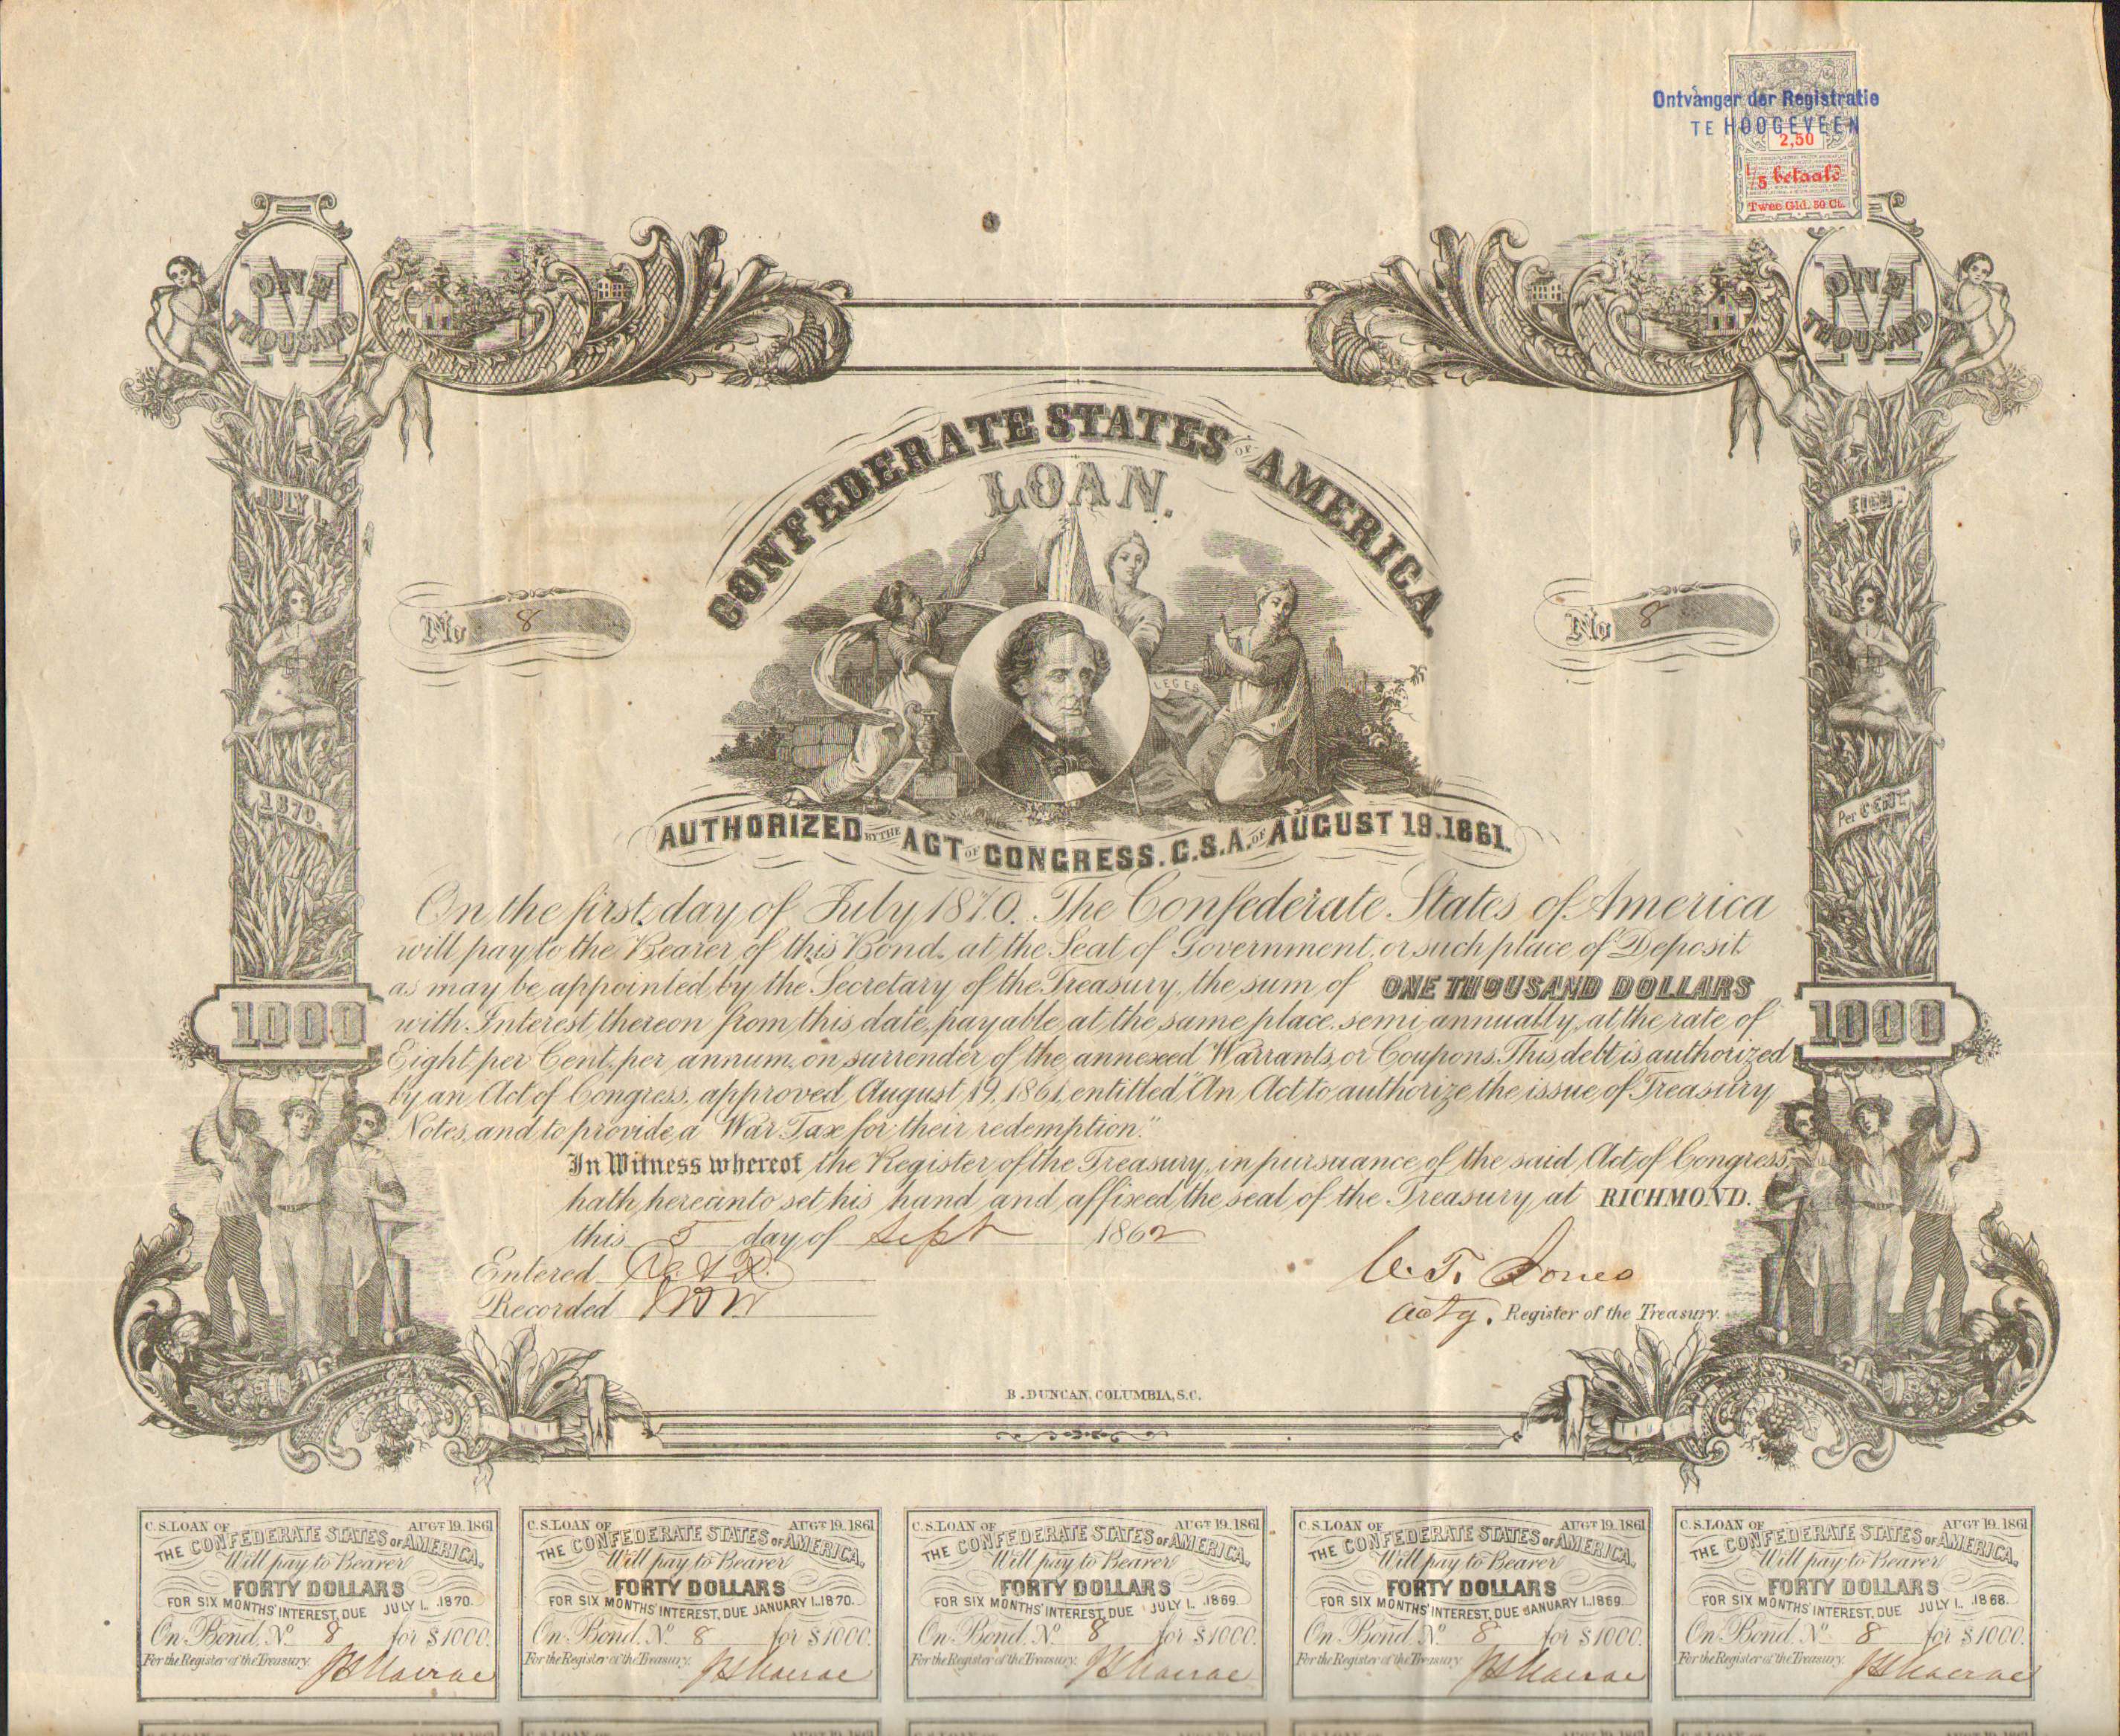 Ontvanger der Registratie
TE HOOGEVEEN
2,50
1/5 betaald
Twee Gld. 50 Ct.
ONE THOUSAND
M
ONE THOUSAND
M
CONFEDERATE STATES OF AMERICA
LOAN.
JULY 1
EIGHT
No 8
No 8
LEGES
1870.
Per CENT
AUTHORIZED BY THE ACT OF CONGRESS. C.S.A. OF AUGUST 19. 1861.
On the first day of July 1870. The Confederate States of America
will pay to the Bearer of this Bond, at the Seat of Government, or such place of Deposit
as may be appointed by the Secretary of the Treasury, the sum of ONE THOUSAND DOLLARS
1000
1000
with Interest thereon from this date, payable at the same place, semi-annually, at the rate of
Eight per Cent, per annum, on surrender of the annexed Warrants, or Coupons. This debt is authorized
by an Act of Congress, approved August 19, 1861, entitled "An Act to authorize the issue of Treasury
Notes, and to provide a War Tax for their redemption."
In Witness whereof the Register of the Treasury, in pursuance of the said Act of Congress
hath hereunto set his hand and affixed the seal of the Treasury at RICHMOND.
this 5 day of Sept 1862
Entered
Recorded
C. T. Jones
actg. Register of the Treasury.
B. DUNCAN, COLUMBIA, S.C.
C.S. LOAN OF AUGT 19. 1861
THE CONFEDERATE STATES OF AMERICA,
Will pay to Bearer
FORTY DOLLARS
FOR SIX MONTHS' INTEREST, DUE JULY 1. 1870.
On Bond, No. 8 for $1000.
For the Register of the Treasury.
C.S. LOAN OF AUGT 19. 1861
THE CONFEDERATE STATES OF AMERICA,
Will pay to Bearer
FORTY DOLLARS
FOR SIX MONTHS' INTEREST, DUE JANUARY 1. 1870.
On Bond, No. 8 for $1000.
For the Register of the Treasury.
C.S. LOAN OF AUGT 19. 1861
THE CONFEDERATE STATES OF AMERICA,
Will pay to Bearer
FORTY DOLLARS
FOR SIX MONTHS' INTEREST, DUE JULY 1. 1869.
On Bond, No. 8 for $1000.
For the Register of the Treasury.
C.S. LOAN OF AUGT 19. 1861
THE CONFEDERATE STATES OF AMERICA,
Will pay to Bearer
FORTY DOLLARS
FOR SIX MONTHS' INTEREST, DUE JANUARY 1. 1869.
On Bond, No. 8 for $1000.
For the Register of the Treasury.
C.S. LOAN OF AUGT 19. 1861
THE CONFEDERATE STATES OF AMERICA,
Will pay to Bearer
FORTY DOLLARS
FOR SIX MONTHS' INTEREST, DUE JULY 1. 1868.
On Bond, No. 8 for $1000.
For the Register of the Treasury.